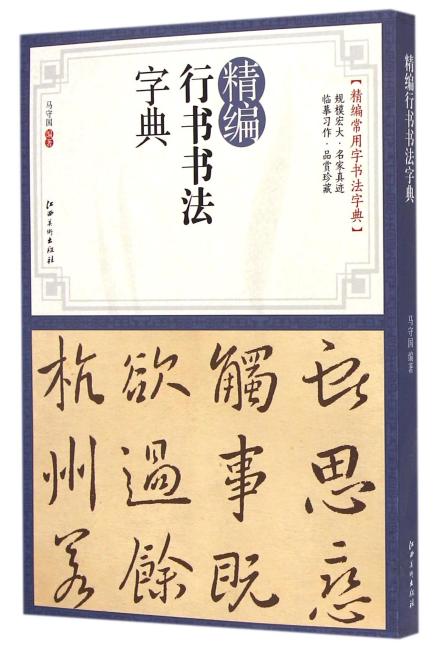 【精编常用字书法字典】
规模宏大·名家真迹
临摹习作·品赏珍藏
精编
行书书法
字典
马守国 编著
江西美术出版社
思恋
觸事既
欲過餘
杭州若
精编行书书法字典
马守国 编著
江西美术出版社